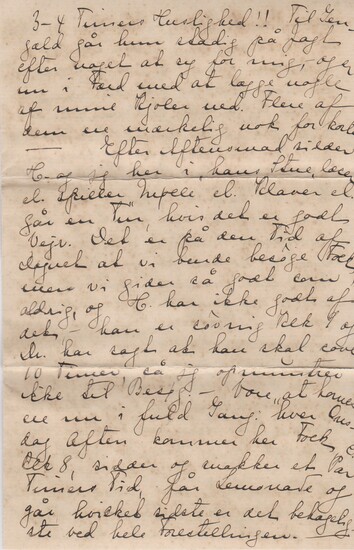 3-4 Timers Huslighed!! Til Gen-
gæld går hun stadig på Jagt
efter noget at sy for mig, og er
nu i Færd med at lægge nogle
af mine Kjoler ned. Flere af
dem ere mærkelig nok for kort
— Efter Aftensmad sidder
H. og jeg her i „hans Stue, læser
el. spiller el. Klaver el.
går en Tur, hvis det er godt
Vejr. Det er på den Tid af
Døgnet at vi burde besøge Folk
men vi gider så godt som
aldrig, og H. har ikke godt af
det – han er søvnig Bek 9 og
Dr. har sagt at han skal sove
10 Timer så jeg opmuntrer
ikke til Besøg. – Vore „at home
ere nu i fuld Gang: hver Ons-
dag Aften kommer her Folk
Clk 8, sidder og snakker et Par
Timers Tid, får Lemonade og
går hvilket sidste er det behagelig
ste ved hele Forestillingen.